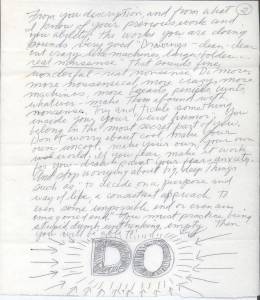 ②
From your description, and from what
I know of your previous work and
your ability; the works you are doing
sounds very good "Drawings - clean - clear
but crazy like machines, larger, bolder...
real nonsense." That sounds fine,
wonderful - real nonsense. Do more.
more nonsensical more crazy more
machines, more breasts, penises, cunts,
whatever - make them abound with
nonsense. Try and tickle something
inside you, your "weird humor." You
belong in the most secret part of you.
Don't worry about cool, make your
own uncool, make your own, your own
world. If you fear, make it work
for you - draw & paint your fear & anxiety.
And stop worrying about big, deep things
such as "to decide on a purpose and
way of life, a consistant approach to
even some impossible end or even an
imagined end." You must practice being
stupid, dumb, unthinking, empty. Then
you will be able to
DO